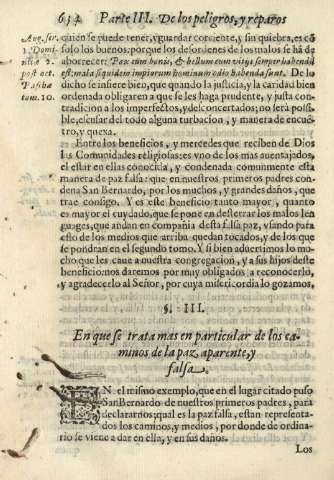 634 Parte III. De los peligros, y reparos
Aug. ser. quien se puede tener, y guardar corriente, y sin quiebra, es cõ
1. Domi- solo los buenos: porque los desordenes de los malos se há de
nicæ 2. aborrecer: Pax cum bonis, & bellum cum vitijs semper habendũ
post oct. est: mala siquidem impiorum hominum odio habenda sunt. De lo
Paschæ dicho se infiere bien, que quando la justicia, y la caridad bien
tom. 10. ordenada obligaren a que se les haga prudente, y justa con-
tradicion a los imperfectos, y desconcertados; no serà possi-
ble, escusar del todo alguna turbacion, y manera de encuẽ-
tro, y quexa.
Entre los beneficios, y mercedes que reciben de Dios
las Comunidades religiosas: es vno de los mas auentajados,
el estar en ellas conocida, y condenada comunmente esta
manera de paz falsa: que en nuestros primeros padres con-
dena San Bernardo, por los muchos, y grandes daños, que
trae consigo. Y es este beneficio tanto mayor, quanto
es mayor el cuydado, que se pone en desterrar los malos len
guages, que andan en compañia desta falsa paz, vsando para
esto de los medios que arriba quedan tocados, y de los que
se pondran en el segundo tomo. Y si bien aduertimos lo mu-
cho que les caue a nuestra congregacion, y a sus hijos deste
beneficio: nos daremos por muy obligados a reconocerlo,
y agradecerlo al Señor, por cuya misericordia lo gozamos.
§. III.
En que se trata mas en particular de los ca-
minos de la paz, aparente, y
falsa.
EN el mismo exemplo, que en el lugar citado puso
San Bernardo de nuestros primeros padres, para
declararnos, qual es la paz falsa, estan representa-
dos los caminos, y medios, por donde de ordina-
rio se viene a dar en ella, y en sus daños.
Los